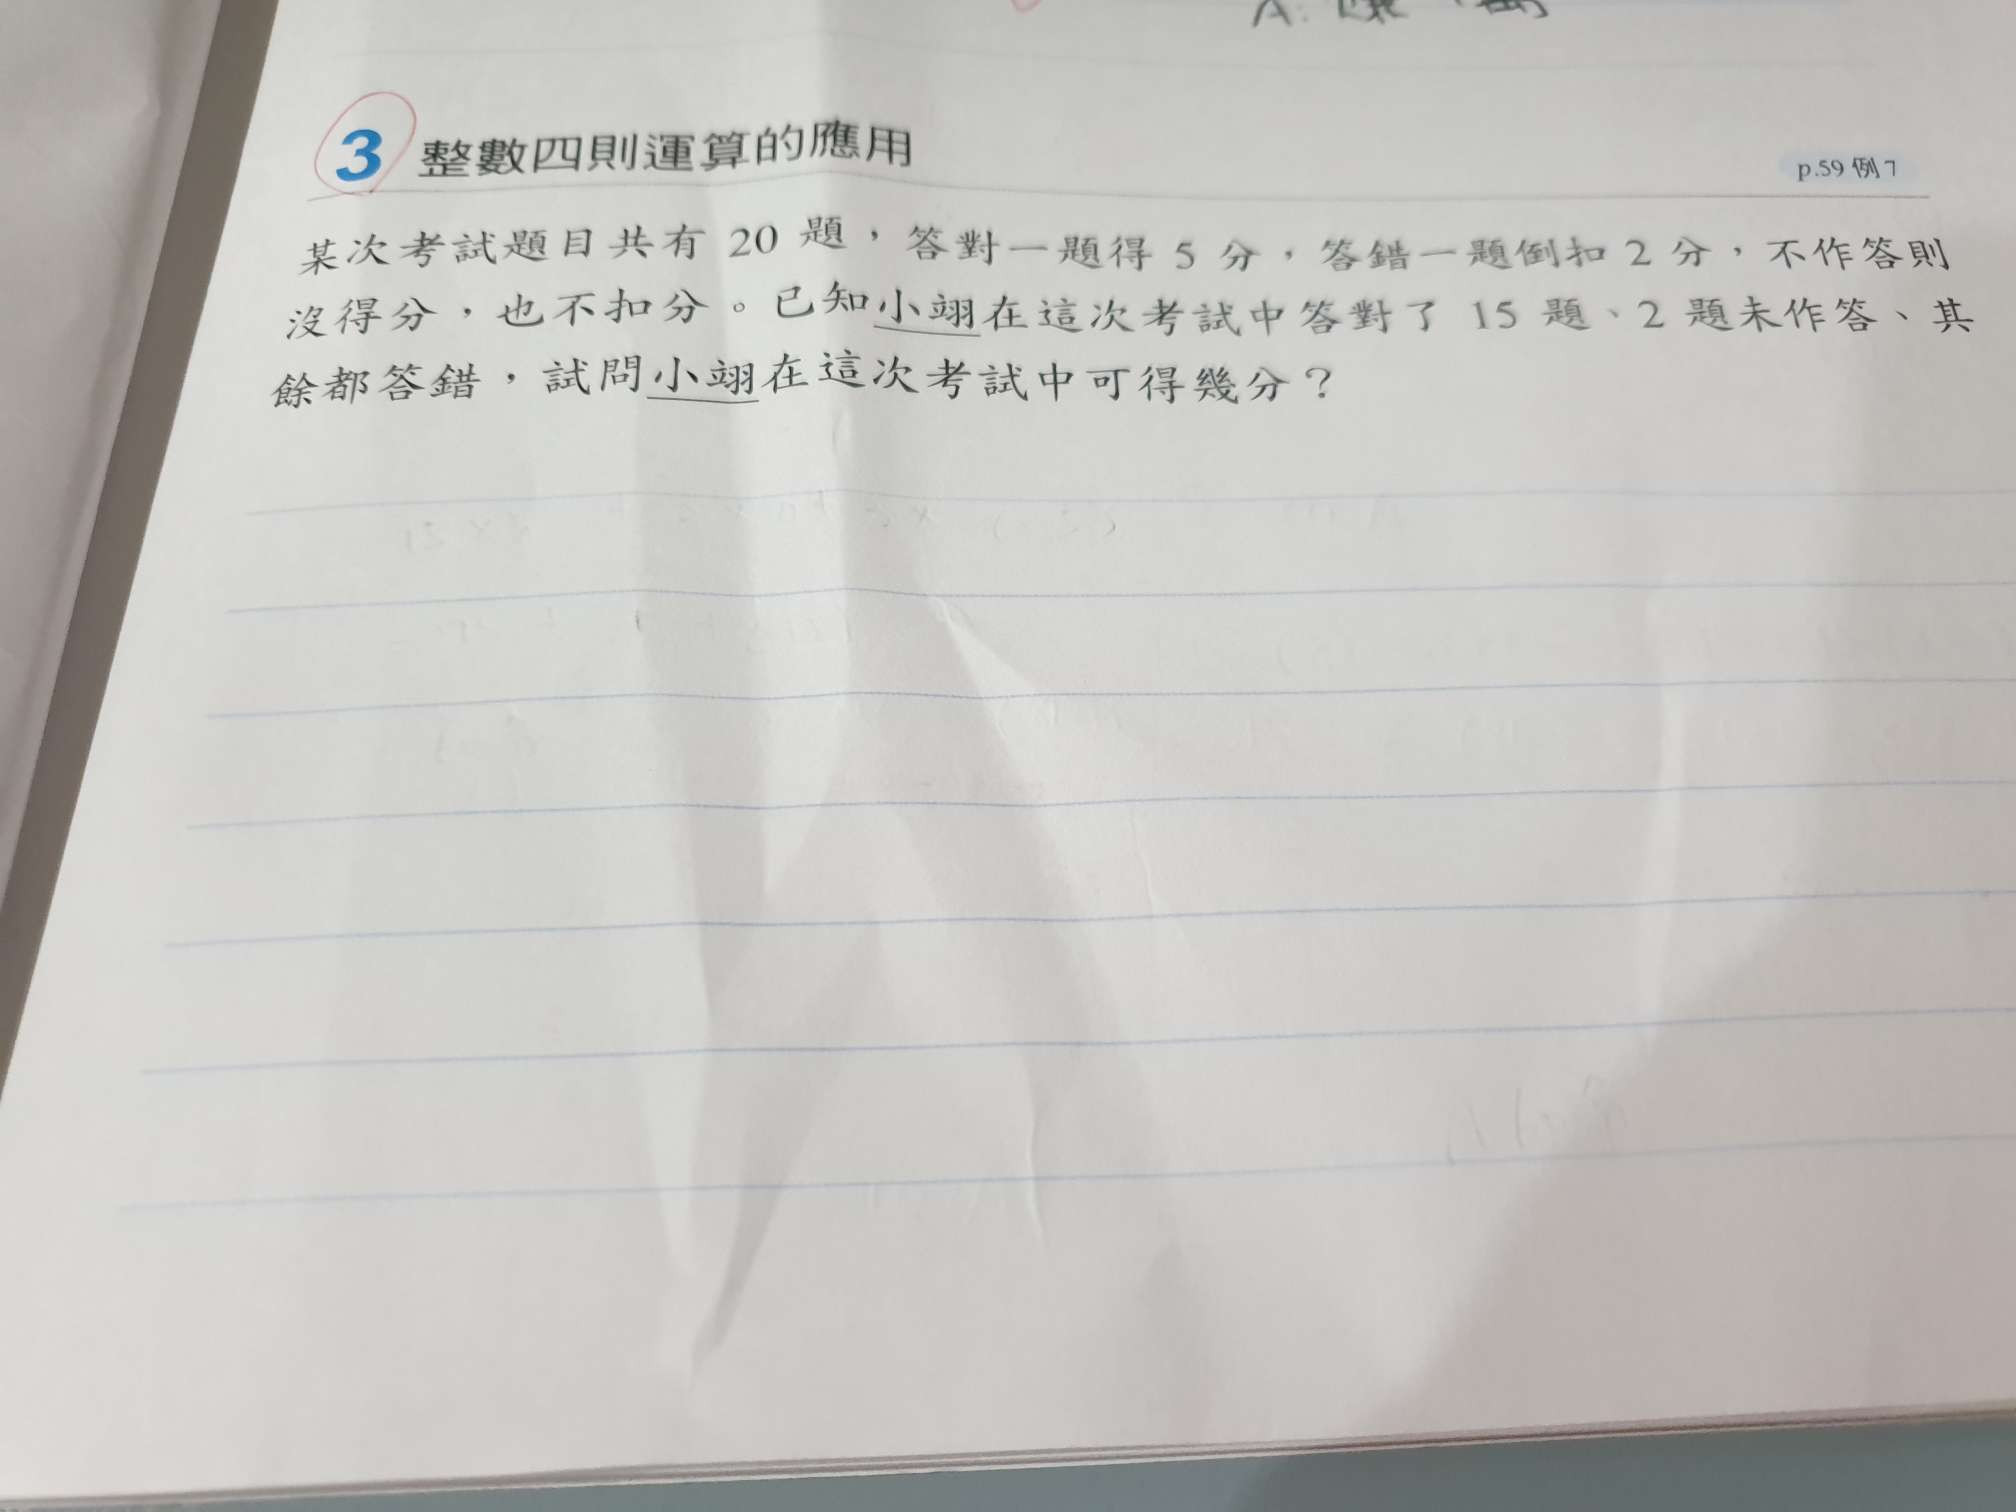 A:
3 整數四則運算的應用
p.59 例 7
某次考試題目共有 20 題，答對一題得 5 分，答錯一題倒扣 2 分，不作答則
沒得分，也不扣分。已知小翊在這次考試中答對了 15 題、2 題未作答、其
餘都答錯，試問小翊在這次考試中可得幾分？